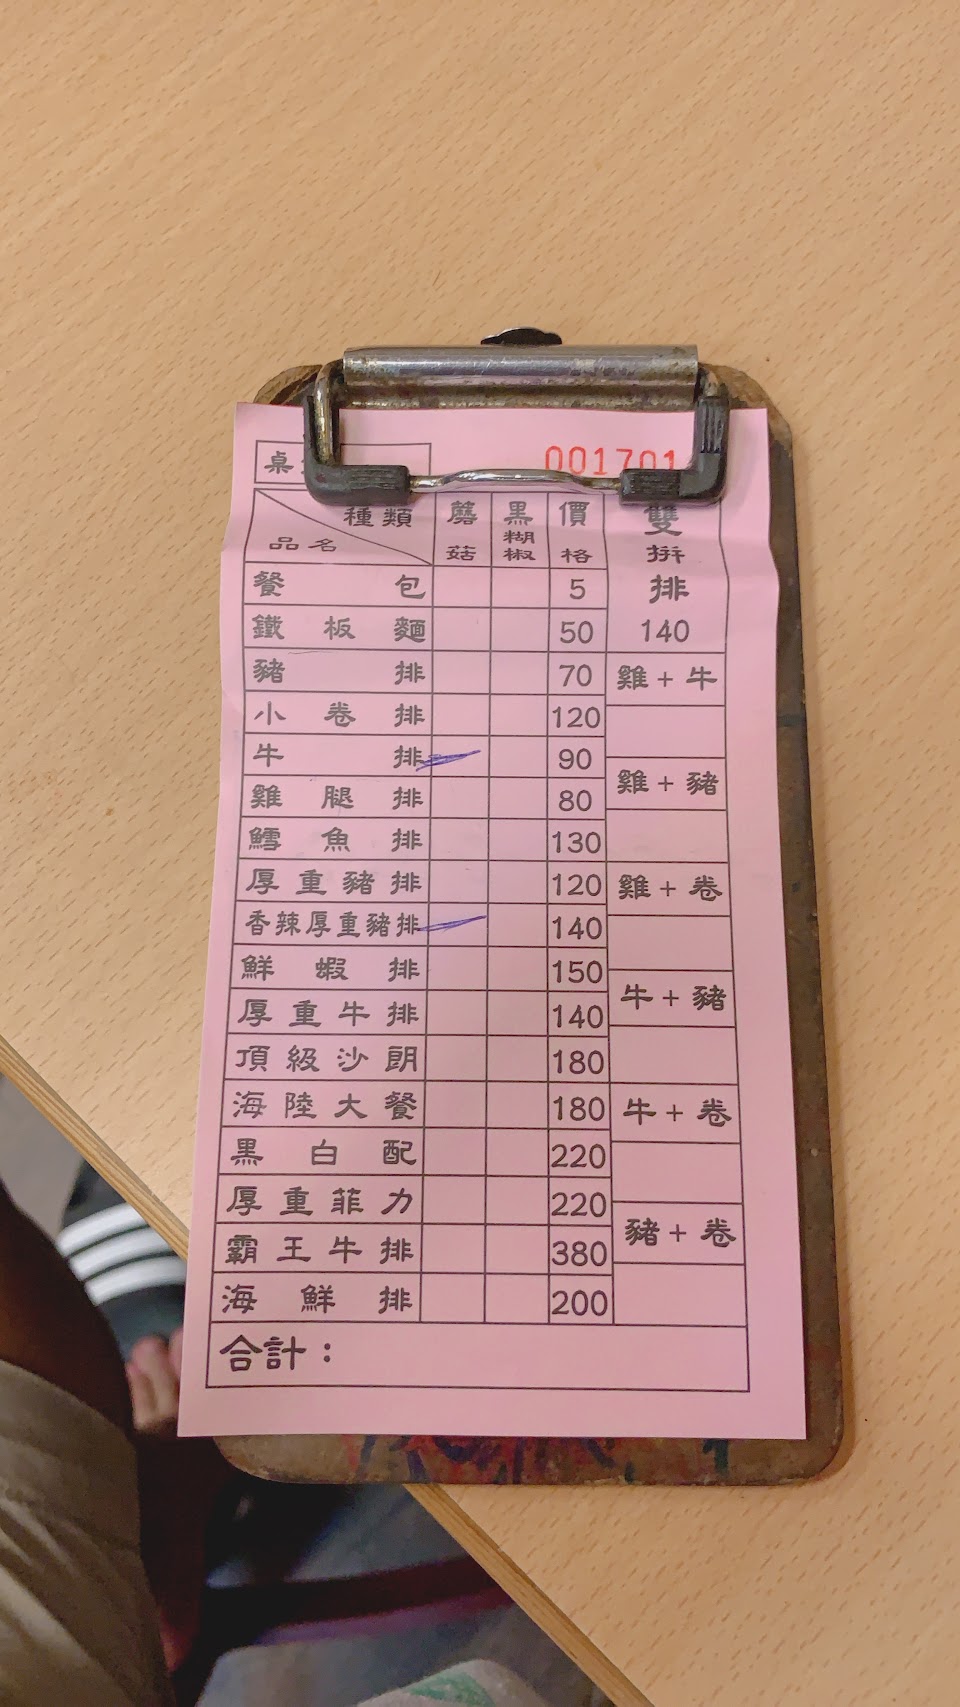 桌
001701
種類 蘑菇 黑糊椒 價格 雙拼排 140
品名
餐包 5
鐵板麵 50
豬排 70 雞+牛
小卷排 120
牛排 90
雞+豬
雞腿排 80
鱈魚排 130
厚重豬排 120 雞+卷
香辣厚重豬排 140
鮮蝦排 150
牛+豬
厚重牛排 140
頂級沙朗 180
海陸大餐 180 牛+卷
黑白配 220
厚重菲力 220
豬+卷
霸王牛排 380
海鮮排 200
合計：